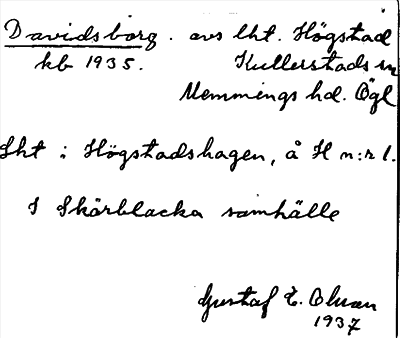 Davidsborg. avs lht. Högstad
kb 1935. Kullerstads sn
Memmings hd. Ögl
Lht i Högstadshagen, å H n:r 1.
I Skärblacka samhälle
Gustaf E. Olsson
1937